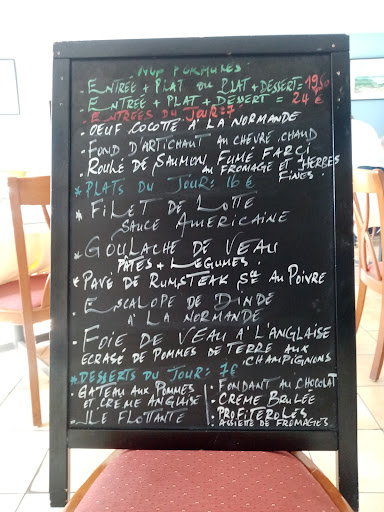 NOS FORMULES:
- ENTRÉE + PLAT OU PLAT + DESSERT = 19€50
- ENTRÉE + PLAT + DESSERT = 24 €
. ENTRÉES DU JOUR: 7€
- OEUF COCOTTE A LA NORMANDE
- FOND D'ARTICHAUT AU CHÈVRE CHAUD
- ROULÉ DE SAUMON FUMÉ FARCI
AU FROMAGE ET HERBES
FINES.
* PLATS DU JOUR: 16 €
* FILET DE LOTTE
SAUCE AMERICAINE
* GOULACHE DE VEAU
PÂTES + LÉGUMES
* PAVÉ DE RUMSTEAK SCE AU POIVRE
- ESCALOPE DE DINDE
A LA NORMANDE
- FOIE DE VEAU A L'ANGLAISE
ECRASÉ DE POMMES DE TERRE AUX
CHAMPIGNONS
* DESSERTS DU JOUR: 7€
- GATEAU AUX POMMES
ET CREME ANGLAISE
- ILE FLOTTANTE
- FONDANT AU CHOCOLAT
- CREME BRULÉE
- PROFITEROLES
- ASSIETTE DE FROMAGES